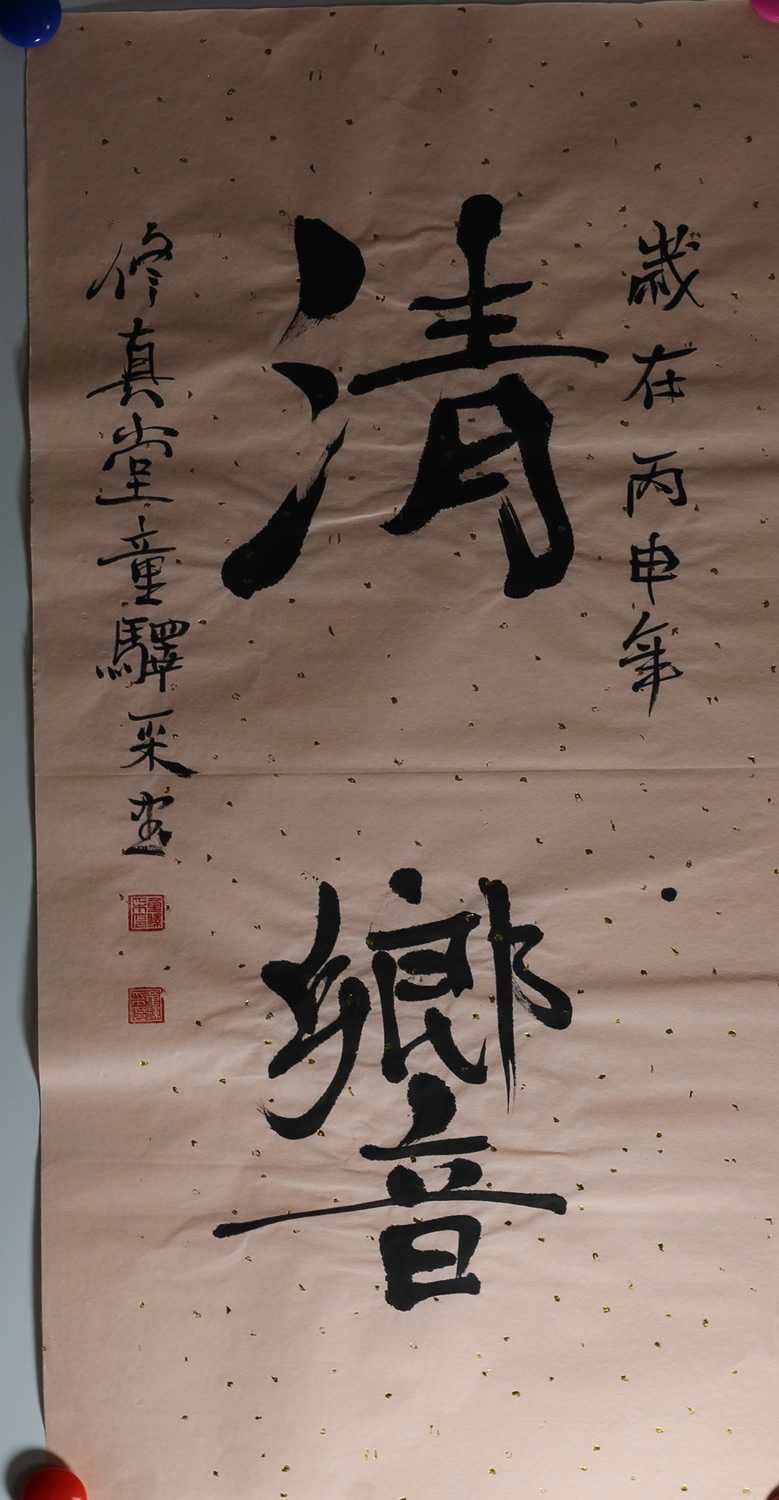 歲在丙申年
清響
修真堂童驛采書